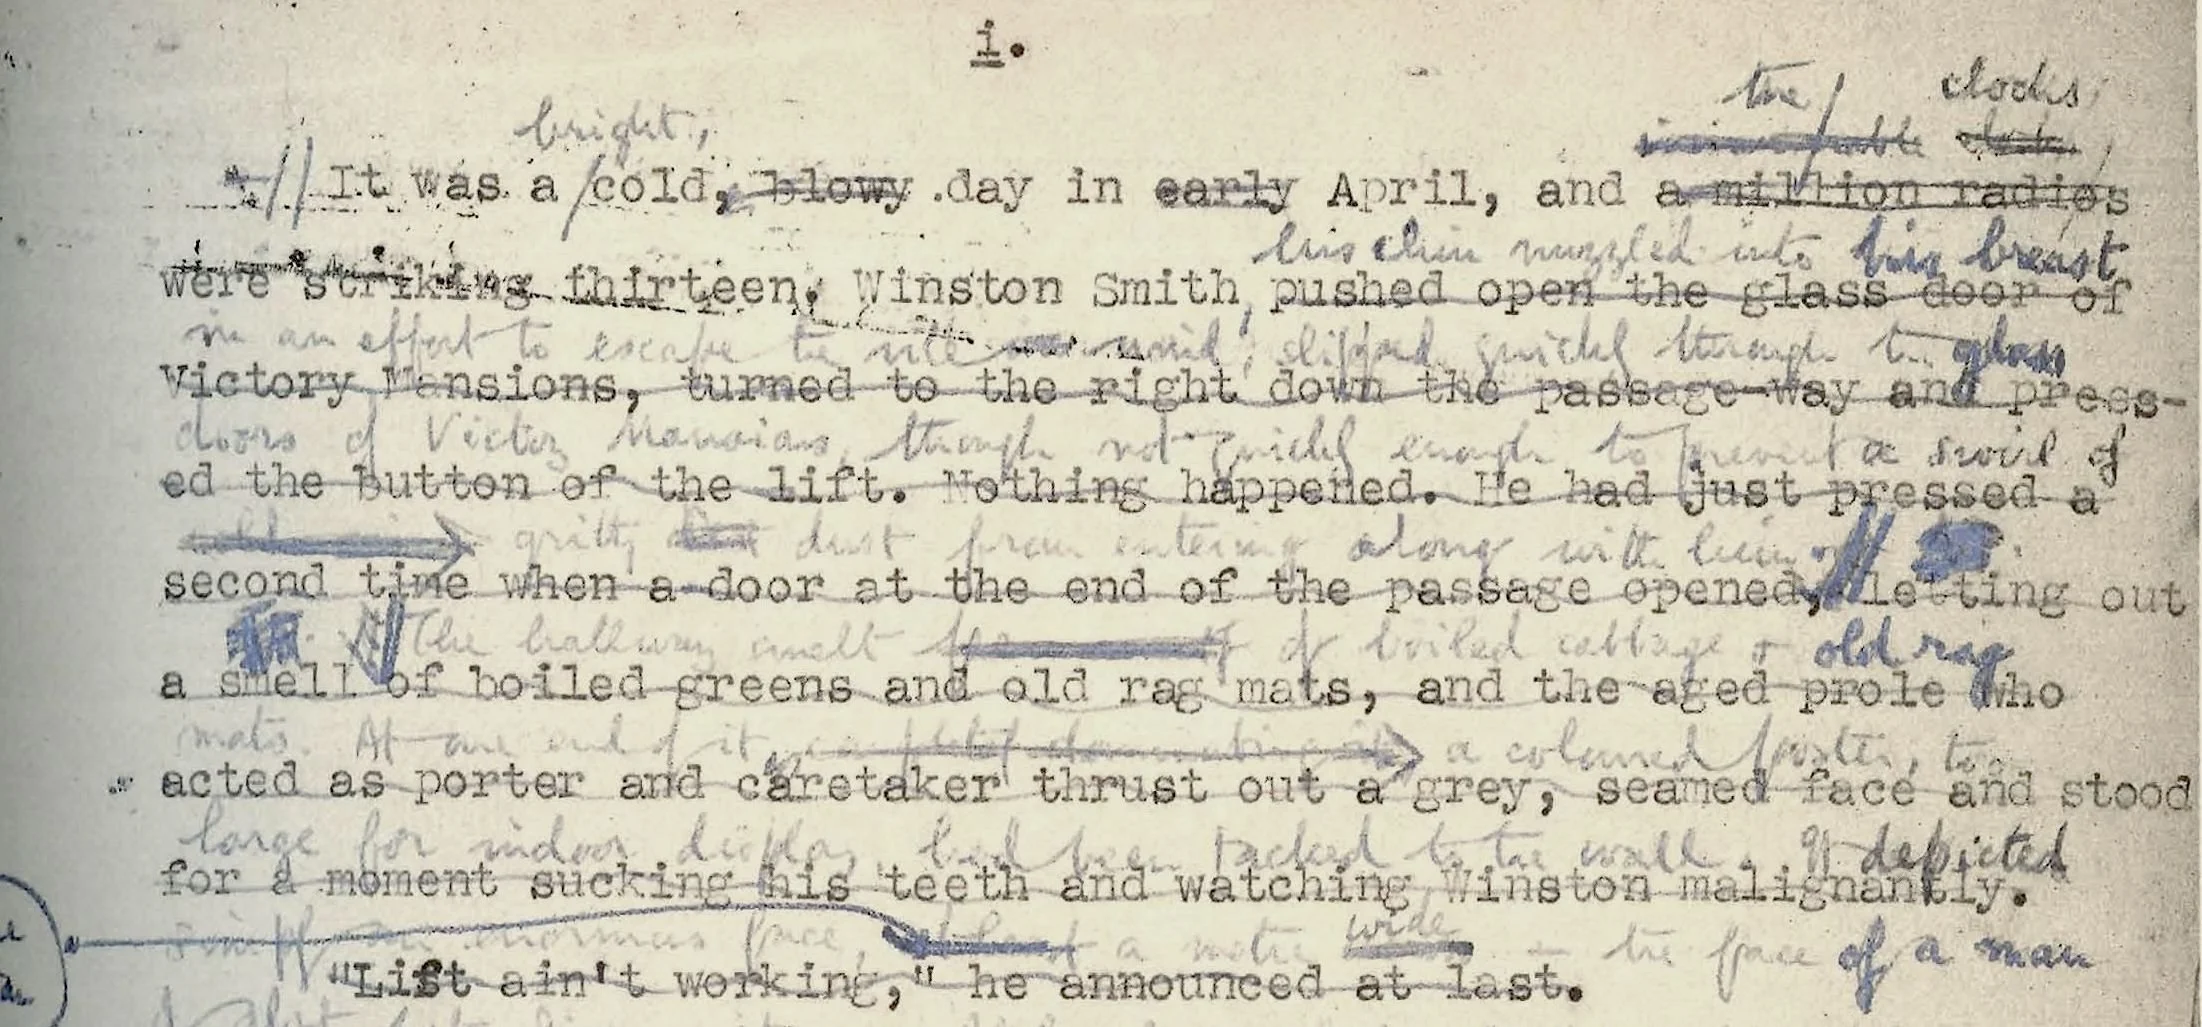 i.
the clocks
bright,
It was a cold, blowy day in early April, and a million radios
his chin nuzzled into his breast
were striking thirteen. Winston Smith, pushed open the glass door of
in an effort to escape the vile wind, slipped quickly through the glass
Victory Mansions, turned to the right down the passage-way and press-
doors of Victory Mansions, though not quickly enough to prevent a swirl of
ed the button of the lift. Nothing happened. He had just pressed a
gritty dust from entering along with him.
second time when a door at the end of the passage opened, letting out
The hallway smelt of boiled cabbage & old rag
a smell of boiled greens and old rag mats, and the aged prole who
mats. At one end of it a coloured poster, too
acted as porter and caretaker thrust out a grey, seamed face and stood
large for indoor display, had been tacked to the wall. It depicted
for a moment sucking his teeth and watching Winston malignantly.
wide
simply an enormous face, a metre - the face of a man
"Lift ain't working," he announced at last.